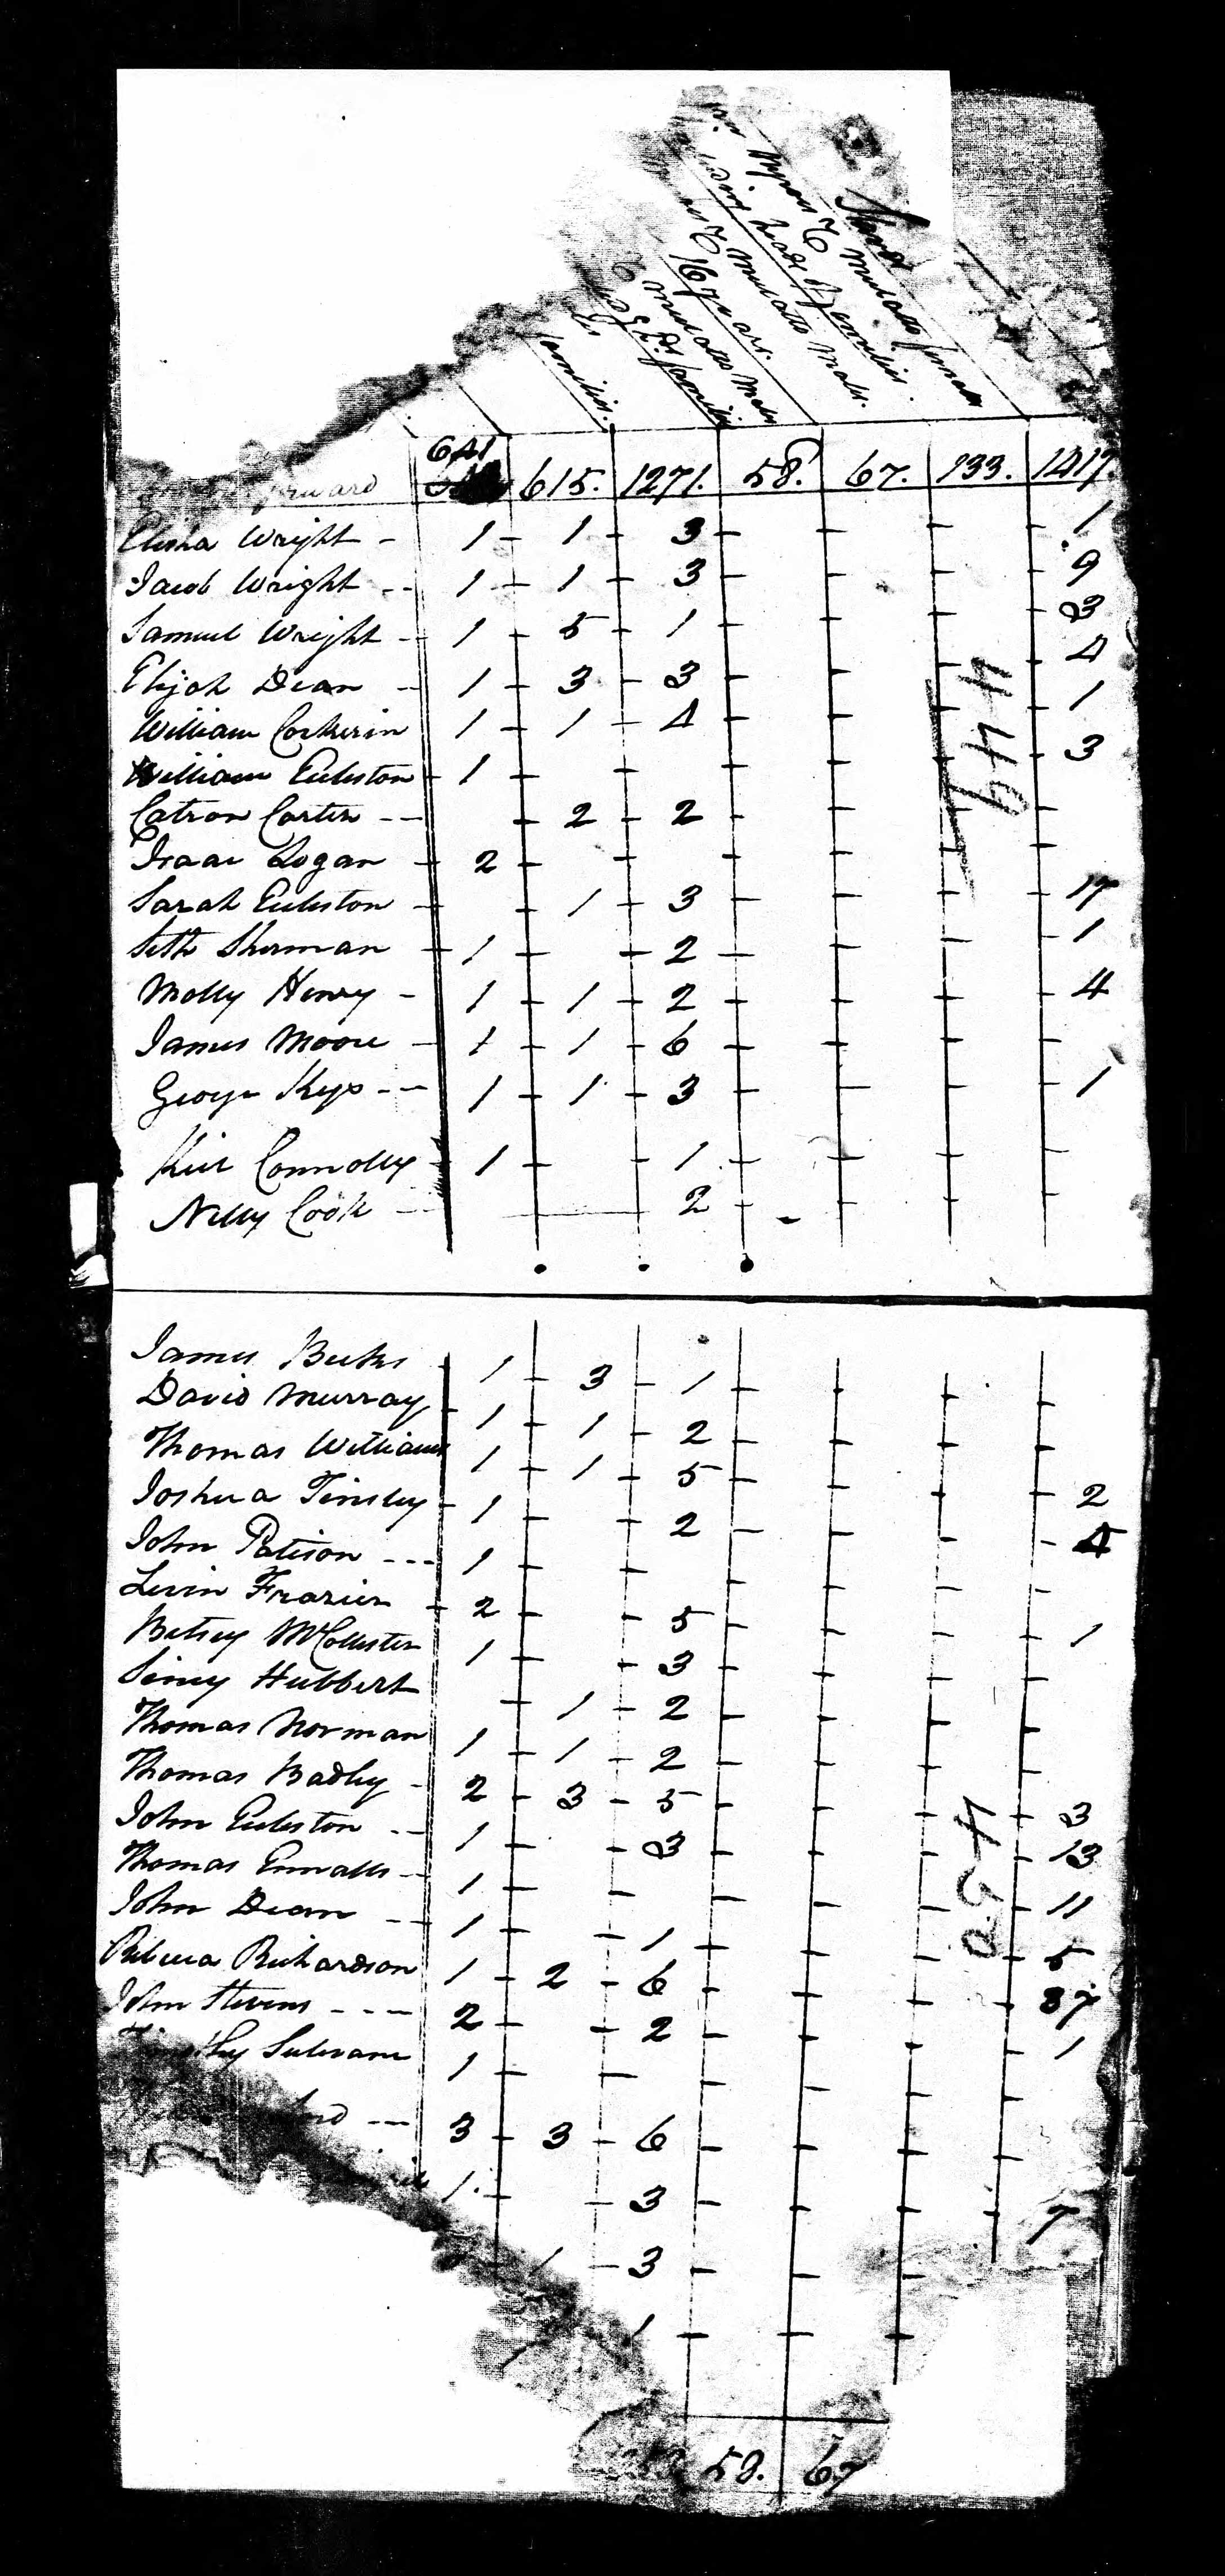 Slaves
Mulatto females
heads of families.
Mulatto Males.
16 years.
Mulatto Males
Do families
families.
forward 641 615. 1271. 58. 67. 133. 1417.
Elisha Wright - 1 - 1 - 3 - - - - 1
Jacob Wright -- 1 - 1 - 3 - - - - 9
Samuel Wright - 1 - 5 - 1 - - - - 3
Elijah Dean - 1 - 3 - 3 - - - - 4
William Corkerin 1 - 1 - 4 - - - - 1
William Eccleston - 1 - - - - - - 3
Catron Carter -- - 2 - 2 - - - -
Isaac Hogan - 2 - - - - - -
Sarah Eccleston - - 1 - 3 - - - - 17
Seth Sherman - 1 - - 2 - - - - 1
Molly Henry - 1 - 1 - 2 - - - - 4
James Moore - 1 - 1 - 6 - - - -
George Keys -- 1 - 1 - 3 - - - - 1
Connolly - 1 - - 1 - - - -
Nelly Cook - 2 - - - - -
449
James 1 - 3 - 1 - - - -
David Murray 1 - 1 - 2 - - - -
Thomas Williams 1 - 1 - 5 - - - - 2
Joshua Tinsley - 1 - - 2 - - - - 4
John Patison --- 1 - - - - - -
Levin Frazier - 2 - - 5 - - - - 1
Betsey McCollister 1 - - 3 - - - -
Hubbert - 1 - 2 - - - -
Thomas Norman 1 - 1 - 2 - - - -
Thomas Badley - 2 - 3 - 5 - - - - 3
John Eccleston -- 1 - - 3 - - - - 13
Thomas Ennalls - 1 - - - - - - 11
John Dean -- 1 - - 1 - - - - 5
Rebecca Richardson 1 - 2 - 6 - - - - 37
John Stevens --- 2 - - 2 - - - - 1
Sulivane 1 - - - - - -
--- 3 - 3 - 6 - - - -
1 - - 3 - - - - 7
- 1 - 3 - - -
1 - - -
450
58. 67